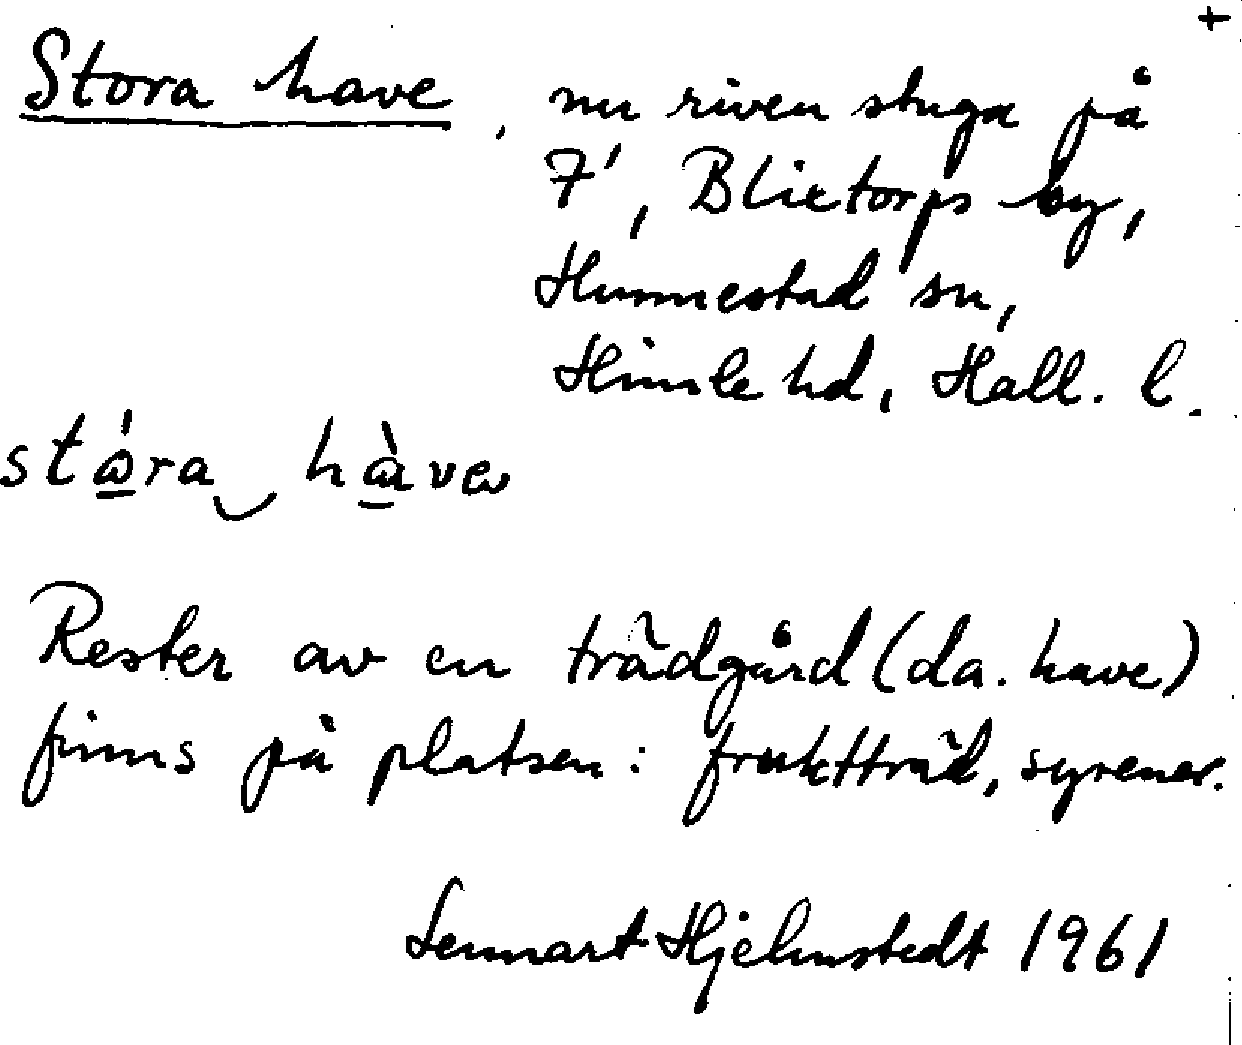 +
Stora have, nu riven stuga på
7', Blixtorps by,
Hunnestad sn,
Himle hd, Hall. l.
Rester av en trädgård (da. have)
finns på platsen: fruktträd, syrener.
Lennart Hjelmstedt 1961